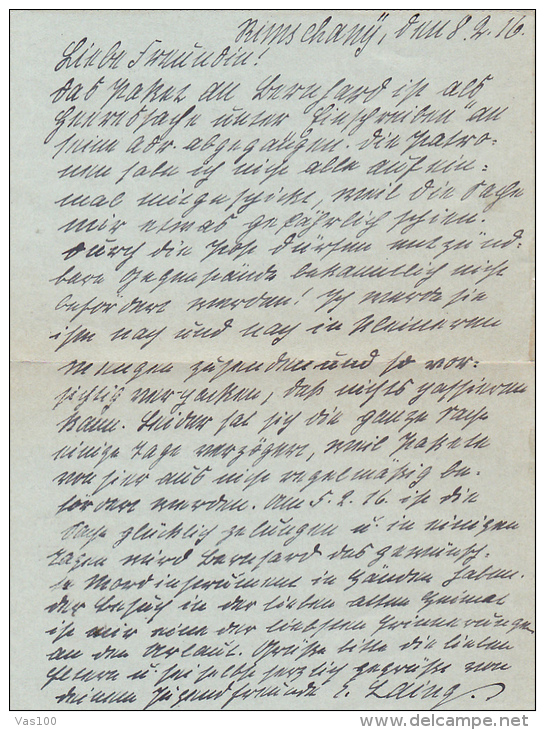 Rimschany, den 8.2.16.
Liebe Freundin!
Das Paket an Bernhard ist als
Heeressache unter "Einschreiben" an
seine Adr. abgegangen. Die Patro-
nen habe ich nicht alle auf ein-
mal mitgeschickt, weil die Sache
mir etwas gefährlich schien.
Durch die Post dürfen entzünd-
bare Gegenstände bekanntlich nicht
befördert werden! Ich werde sie
ihm nach und nach in kleineren
Mengen zusenden und so vor-
sichtig verpacken, daß nichts passieren
kann. Leider hat sich die ganze Sache
einige Tage verzögert, weil Pakete
von hier aus nicht regelmäßig be-
fördert werden. Am 5.2.16. ist die
Sache glücklich gelungen u. in einigen
Tagen wird Bernhard das gewünsch-
te Mordinstrument in Händen haben.
Der Besuch in der lieben alten Heimat
ist mir eine der liebsten Erinnerungen
an den Urlaub. Grüße bitte die lieben
Eltern u. sei selbst herzlich gegrüßt von
deinem Jugendfreunde
Vas100
www.delcampe.net